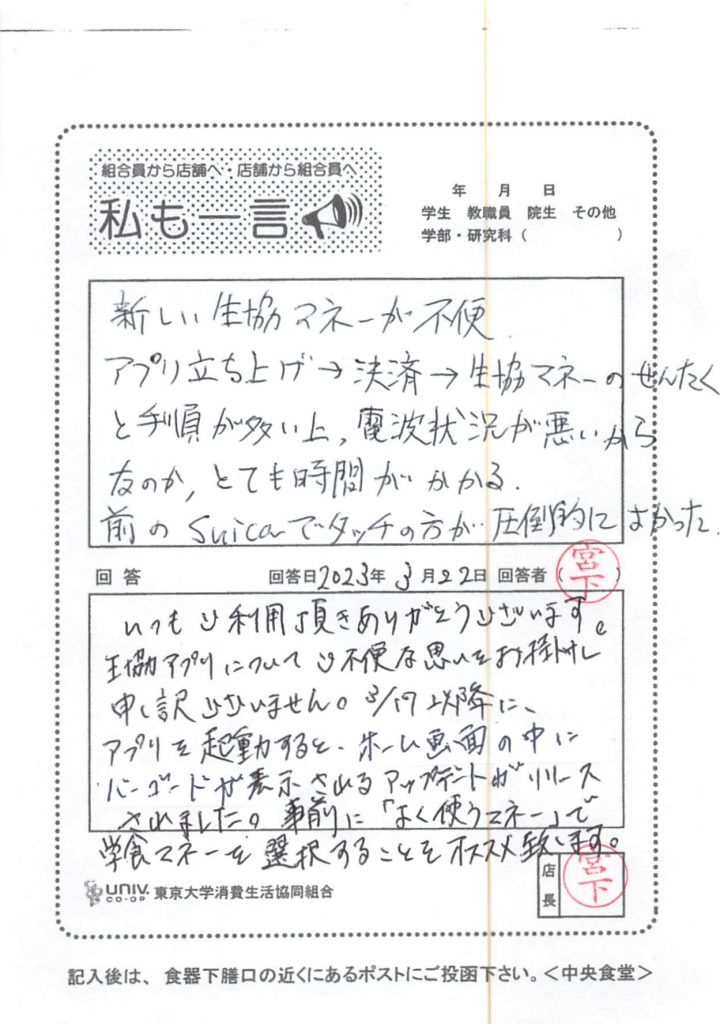 組合員から店舗へ・店舗から組合員へ
私も一言
年 月 日
学生 教職員 院生 その他
学部・研究科( )
新しい生協マネーが不便.
アプリ立ち上げ→決済→生協マネーのせんたく
と手順が多い上, 電波状況が悪いから
なのか, とても時間がかかる.
前のSuicaでタッチの方が圧倒的によかった.
回答 回答日2023年3月22日 回答者(宮下)
いつもご利用頂きありがとうございます。
生協アプリについてご不便な思いをお掛けし
申し訳ございません。3/17以降に、
アプリを起動すると、ホーム画面の中に
バーコードが表示されるアップデートがリリース
されました。事前に「よく使うマネー」で
学食マネーを選択することをオススメ致します。
UNIV. CO-OP 東京大学消費生活協同組合
店長 宮下
記入後は、食器下膳口の近くにあるポストにご投函下さい。<中央食堂>